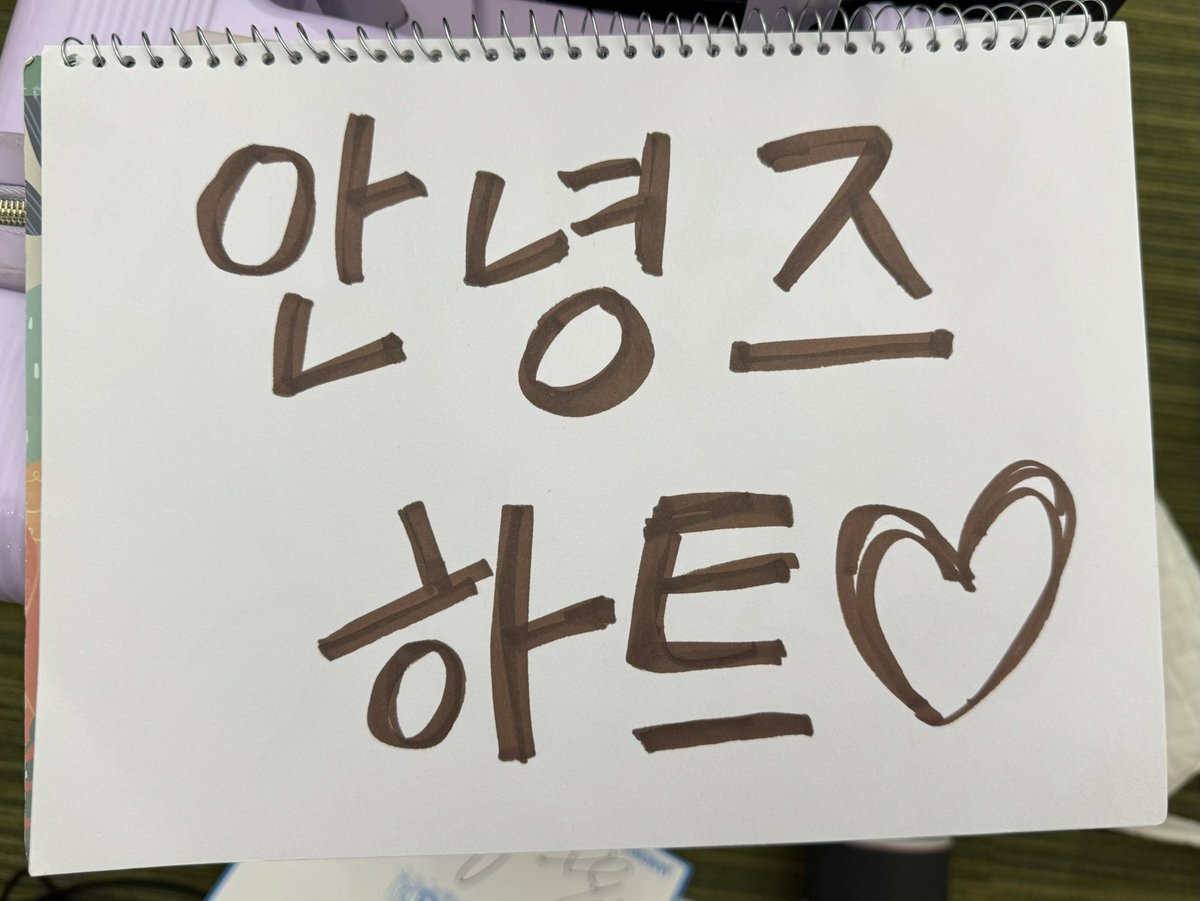 안녕즈
하트♡